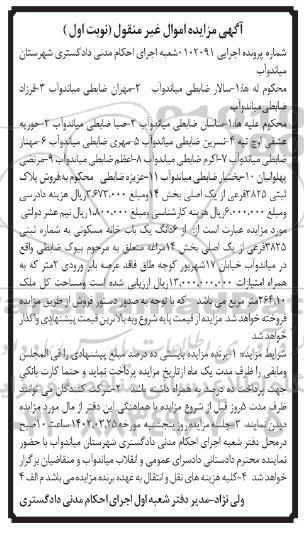 آگهی مزایده اموال غیر منقول (نوبت اول )
شماره پرونده اجرایی ۰۱۰۲۰۹۱شعبه اجرای احکام مدنی دادگستری شهرستان
میاندوآب
محکوم له ها:۱-سالار ضابطی میاندوآب ۲-مهران ضابطی میاندوآب ۳-فرزاد
ضابطی میاندوآب
محکوم علیه ها:۱-ساسان ضابطی میاندوآب ۲-صبا ضابطی میاندوآب ۳-حوریه
عشقی اوچ تپه ۴-نسرین ضابطی میاندوآب ۵-مهری ضابطی میاندوآب ۶-مهناز
ضابطی میاندوآب ۷-اکرم ضابطی میاندوآب ۸-اعظم ضابطی میاندوآب ۹-مرتضی
پهلوانیان ۱۰-بختیار ضابطی میاندوآب ۱۱-عزیزه ضابطی محکوم به فروش پلاک
ثبتی ۳۸۲۵فرعی از یک اصلی بخش ۱۴ومبلغ ۳.۶۷۳.۰۰۰ریال هزینه دادرسی
ومبلغ ۶.۰۰۰.۰۰۰ریال هزینه کارشناسی ومبلغ ۱.۵۰۰.۰۰۰ریال نیم عشر دولتی
مورد مزایده عبارت است از: از ۶دانگ یک باب خانه مسکونی به شماره ثبتی
۳۸۲۵فرعی از یک اصلی بخش ۱۴مراغه متعلق به مرحوم بیوک ضابطی واقع
در میاندوآب خیابان ۱۷شهریور کوچه طاق فاقد عرصه بابر ورودی ۲متر که به
همراه امتیازات ۱۳.۰۰۰.۰۰۰.۰۰۰ریال ارزیابی شده است ومساحت کل ملک
۲۶۴.۱۰متر مربع می باشد که با توجه به صدور دستور فروش از طریق مزایده
فروخته خواهد شد. مزایده از قیمت پایه شروع وبه بالاترین قیمت پیشنهادی واگذار
خواهد شد.
شرایط مزایده: ۱-برنده مزایده بایستی ده درصد مبلغ پیشنهادی را فی المجلس
ومابقی را ظرف مدت یک ماه ازتاریخ مزایده پرداخت نماید و حتما کارت بانکی
جهت پرداخت ده درصد به همراه داشته باشد ۲-شرکت کنندگان می توانند
ظرف مدت ۵روز قبل از شروع مزایده با هماهنگی این دفتر از مال مورد مزایده
دیدن نمایند ۳-جلسه مزایده روز پنجشنبه مورخه ۱۴۰۲.۰۳.۲۵ساعت ۱۰صبح
درمحل دفتر شعبه اجرای احکام مدنی دادگستری شهرستان میاندوآب با حضور
نماینده محترم دادستانی دادسرای عمومی و انقلاب میاندوآب و متقاضیان برگزار
خواهد شد ۴-کلیه هزینه های نقل و انتقال به عهده برنده مزایده می باشد م الف ۴
ولی نژاد-مدیر دفتر شعبه اول اجرای احکام مدنی دادگستری